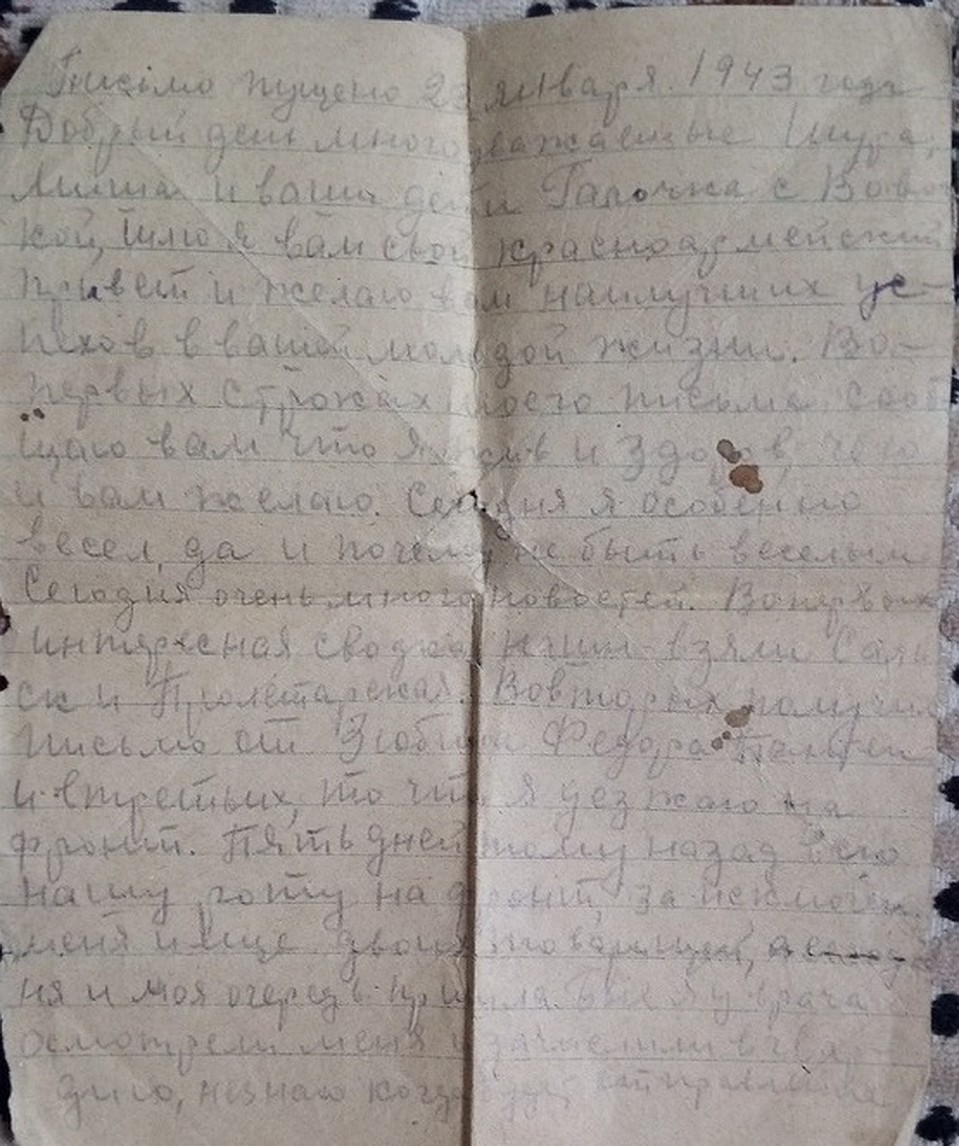 Письмо пущено 23 января 1943 года
Добрый день многоуважаемые Шура,
Миша и ваши дети Галочка с Вово
кой, шлю я вам свой красноармейский
привет и желаю вам наилучших ус-
пехов в вашей молодой жизни. Во-
первых строках моего письма сооб
щаю вам что я жив и здоров, чего
и вам желаю. Сегодня я особенно
весел, да и почему не быть веселым
Сегодня очень много новостей. Вопервых
интересная сводка наши взяли Саль
ск и Пролетарская. Вовторых получил
письмо от Федора
и втретьих, то что я уезжаю на
фронт. Пять дней тому назад всю
нашу роту на фронт, за исключен.
меня и еще двоих товарищей, а сегод
ня и моя очередь пришла. Был я у врача
осмотрели меня и зачислили в гвар-
дию, незнаю когда будет отправка